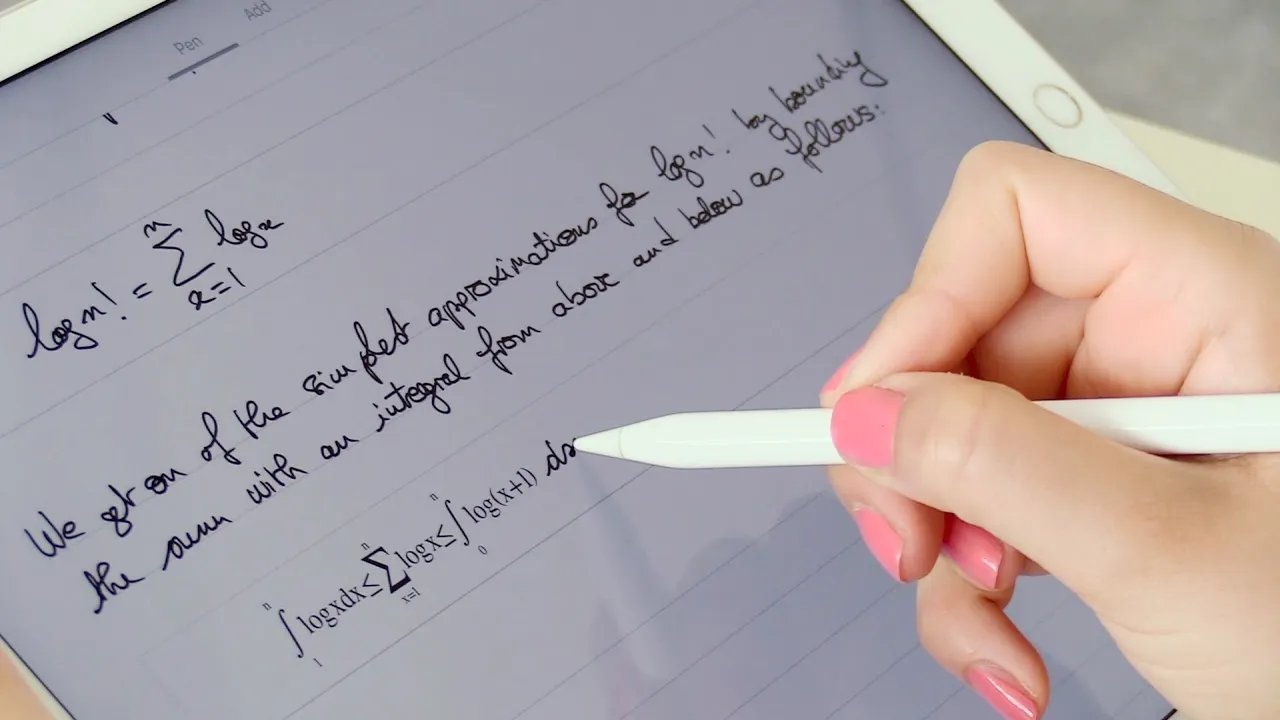 Pen Add
log n! = ∑_{x=1}^{n} log x
We get on of the simplest approximations for log n! by bounding
the sum with an integral from above and below as follows:
∫_1^n logxdx ≤ ∑_{x=1}^n logx ≤ ∫_0^n log(x+1) dx